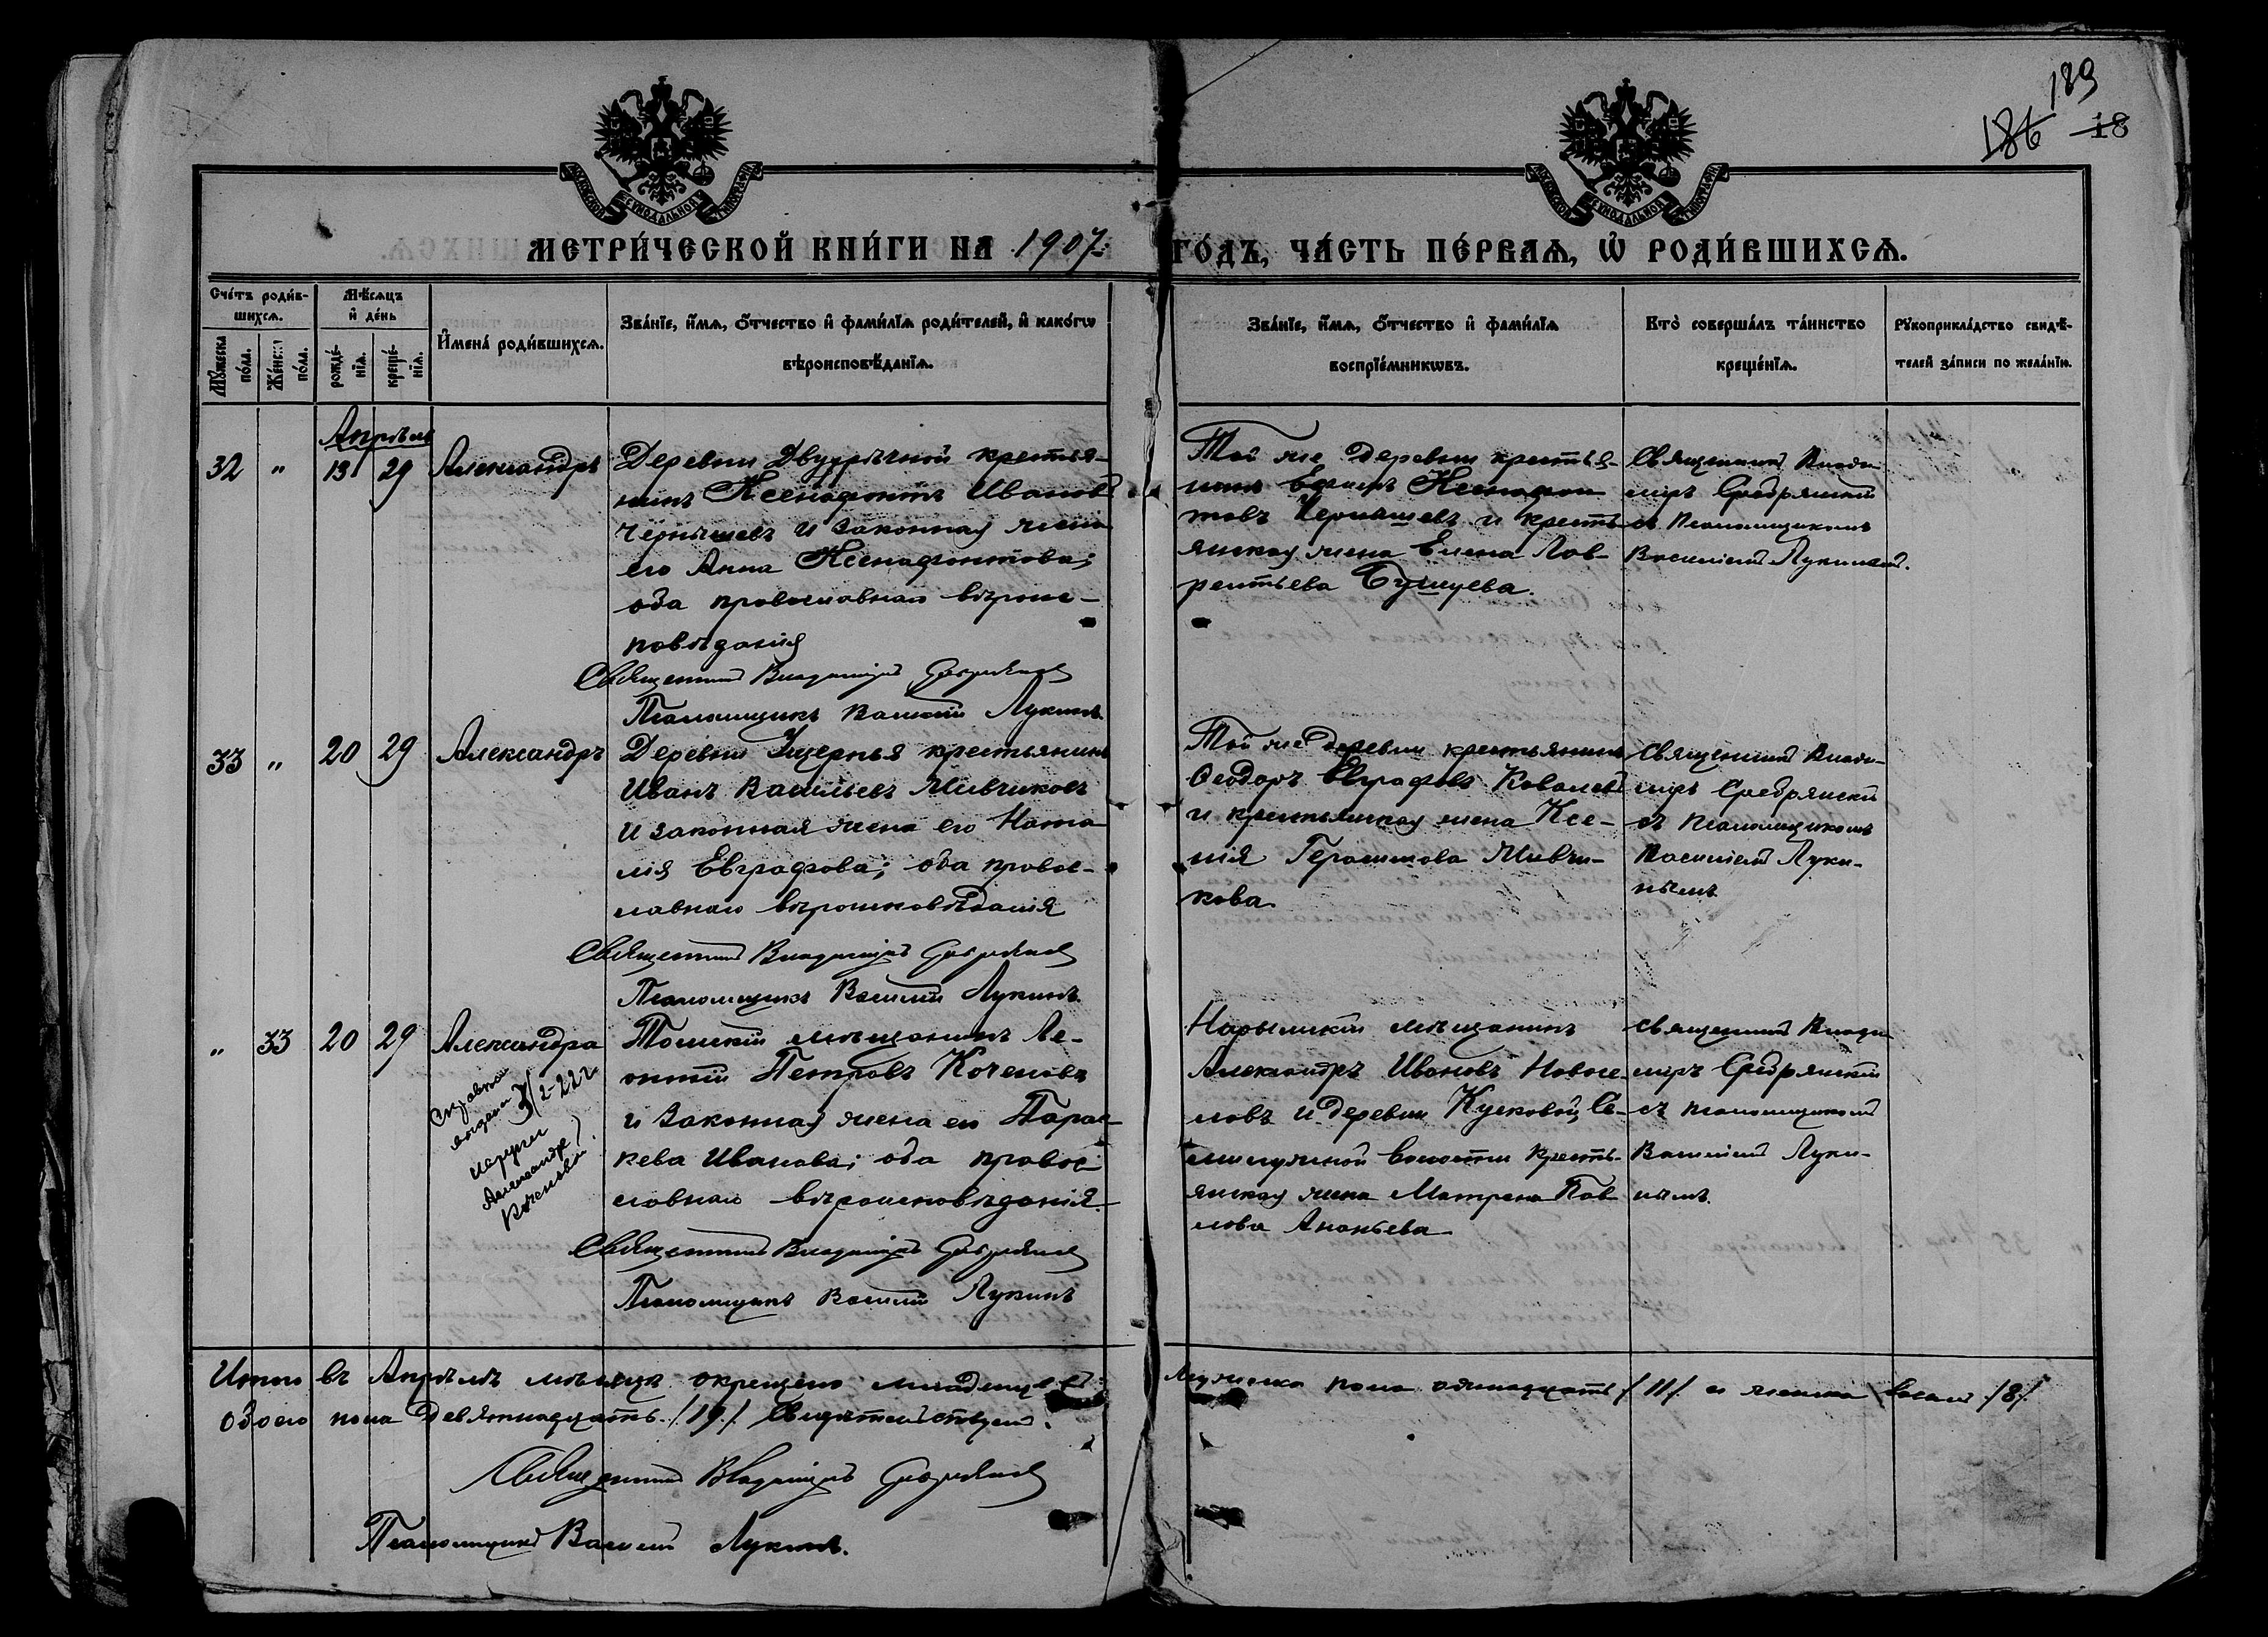 189
186 18
МОСКОВСКОЙ СѴНОДАЛЬНОЙ ТИПОГРАФІИ
МОСКОВСКОЙ СѴНОДАЛЬНОЙ ТИПОГРАФІИ
МЕТРИ́ЧЕСКОЙ КНИ́ГИ НА 1907 ГО́ДЪ, ЧА́СТЬ ПЕ́РВАѦ, Ѡ҆ РОДИ́ВШИХСѦ.
Сче́тъ роди́в-
шихсѧ.
Мѣ́сѧцъ
и҆ де́нь
Мꙋ́жеска по́ла.
Же́нска по́ла.
рожде́-
нїѧ.
креще́-
нїѧ.
И҆мена̀ роди́вшихсѧ.
Зва́нїе, и҆́мѧ, ѻ҆́тчество и҆ фами́лїѧ роди́телей, и҆ како́гѡ
вѣроисповѣ́данїѧ.
Зва́нїе, и҆́мѧ, ѻ҆́тчество и҆ фами́лїѧ
воспрїе́мникѡвъ.
Кто̀ соверша́лъ та́инство
креще́нїѧ.
Рꙋкоприкла́дство свидѣ́-
телей за́писи по жела́нїю.
Апрѣль
32 " 13 29 Александръ
Деревни Двурѣчной крестья-
нинъ Ксенафонтъ Ивановъ
Чернышевъ и законная жена
его Анна Ксенафонтова;
оба православнаго вѣроис-
повѣданія
Священникъ Владиміръ Сребрянскій
Псаломщикъ Василій Лукинъ
Той же деревни крестья-
нинъ Ксенафон-
товъ Чернышевъ и кресть-
янская жена Елена Лав-
рентьева Бушуева.
Священникъ Влади-
міръ Сребрянскій
съ псаломщикомъ
Василіемъ Лукинымъ.
33 " 20 29 Александръ
Деревни крестьянинъ
Иванъ Васильевъ Мивчиковъ
и законная жена его Ната-
лія Евграфова; оба правос-
лавнаго вѣроисповѣданія
Священникъ Владиміръ Сребрянскій
Псаломщикъ Василій Лукинъ
Той же деревни крестьянинъ
Ѳеодоръ Евграфовъ Ковалевъ
и крестьянская жена Ксе-
нія Герасимова Мивчи-
кова
Священникъ Влади-
міръ Сребрянскій
съ псаломщикомъ
Василіемъ Луки-
нымъ
" 33 20 29 Александра
Справка
выдана 3/2-22 г.
Александре
Коченовой
Томскій мѣщанинъ Ле-
онтій Петровъ Коченовъ
и законная жена его Парас-
кева Иванова; оба правос-
лавнаго вѣроисповѣданія
Священникъ Владиміръ Сребрянскій
Псаломщикъ Василій Лукинъ
Нарымскій мѣщанинъ
Александръ Ивановъ Новосе-
ловъ и деревни Кусковой, Се-
милужной волости кресть-
янская жена Матрена Пав-
лова Ананьева
Священникъ Влади-
міръ Сребрянскій
съ псаломщикомъ
Василіемъ Луки-
нымъ.
Итого въ Апрѣлѣ мѣсяцѣ окрещено младенцевъ мужеска пола одинадцать /11/ и женска восемь /8/
обоего пола девятнадцать /19/ Свидѣтельствуемъ.
Священникъ Владиміръ Сребрянскій
Псаломщикъ Василій Лукинъ.